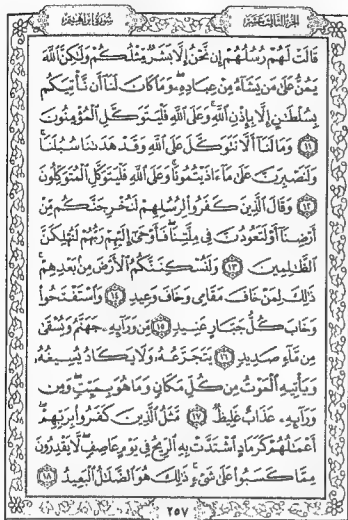 الجزء الثالث عشر
سورة إبراهيم
قَالَتْ لَهُمْ رُسُلُهُمْ إِن نَّحْنُ إِلَّا بَشَرٌ مِّثْلُكُمْ وَلَٰكِنَّ ٱللَّهَ
يَمُنُّ عَلَىٰ مَن يَشَآءُ مِنْ عِبَادِهِۦ وَمَا كَانَ لَنَآ أَن نَّأْتِيَكُم
بِسُلْطَٰنٍ إِلَّا بِإِذْنِ ٱللَّهِ وَعَلَى ٱللَّهِ فَلْيَتَوَكَّلِ ٱلْمُؤْمِنُونَ
١١ وَمَا لَنَآ أَلَّا نَتَوَكَّلَ عَلَى ٱللَّهِ وَقَدْ هَدَىٰنَا سُبُلَنَا
وَلَنَصْبِرَنَّ عَلَىٰ مَآ ءَاذَيْتُمُونَا وَعَلَى ٱللَّهِ فَلْيَتَوَكَّلِ ٱلْمُتَوَكِّلُونَ
١٢ وَقَالَ ٱلَّذِينَ كَفَرُوا۟ لِرُسُلِهِمْ لَنُخْرِجَنَّكُم مِّنْ
أَرْضِنَآ أَوْ لَتَعُودُنَّ فِى مِلَّتِنَا فَأَوْحَىٰٓ إِلَيْهِمْ رَبُّهُمْ لَنُهْلِكَنَّ
ٱلظَّٰلِمِينَ ١٣ وَلَنُسْكِنَنَّكُمُ ٱلْأَرْضَ مِنۢ بَعْدِهِمْ
ذَٰلِكَ لِمَنْ خَافَ مَقَامِى وَخَافَ وَعِيدِ ١٤ وَٱسْتَفْتَحُوا۟
وَخَابَ كُلُّ جَبَّارٍ عَنِيدٍ ١٥ مِّن وَرَآئِهِۦ جَهَنَّمُ وَيُسْقَىٰ
مِن مَّآءٍ صَدِيدٍ ١٦ يَتَجَرَّعُهُۥ وَلَا يَكَادُ يُسِيغُهُۥ
وَيَأْتِيهِ ٱلْمَوْتُ مِن كُلِّ مَكَانٍ وَمَا هُوَ بِمَيِّتٍ وَمِن
وَرَآئِهِۦ عَذَابٌ غَلِيظٌ ١٧ مَّثَلُ ٱلَّذِينَ كَفَرُوا۟ بِرَبِّهِمْ
أَعْمَٰلُهُمْ كَرَمَادٍ ٱشْتَدَّتْ بِهِ ٱلرِّيحُ فِى يَوْمٍ عَاصِفٍ لَّا يَقْدِرُونَ
مِمَّا كَسَبُوا۟ عَلَىٰ شَىْءٍ ذَٰلِكَ هُوَ ٱلضَّلَٰلُ ٱلْبَعِيدُ ١٨
٢٥٧